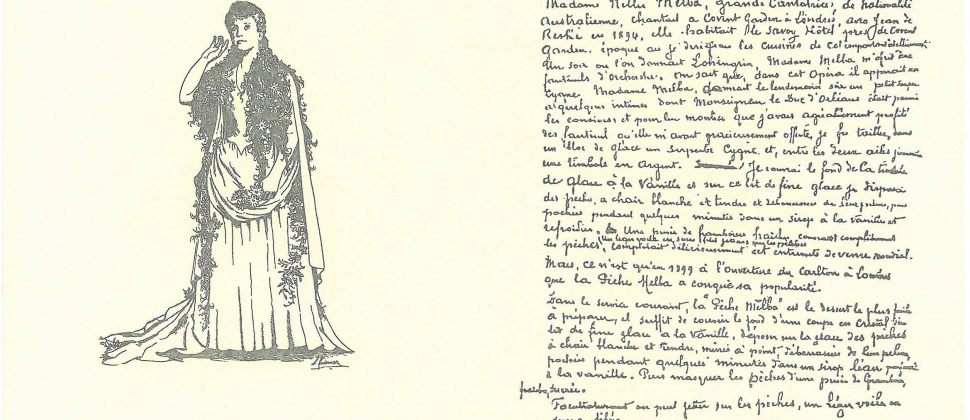 Madame Nellie Melba, grande Cantatrice, de nationalité
Australienne, chantait à Covent Garden à Londres, avec Jean de
Reské en 1894, elle habitait le Savoy Hôtel près de Covent
Garden. époque où je dirigeais les cuisines de cet important établissement
Un soir ou l'on donnait Lohengrin, Madame Melba m'offrit
fauteuils d'Orchestre. On sait que, dans cet Opéra il apparait un
Cygne. Madame Melba, donnait le lendemain soir un petit Souper
à quelques intimes dont Monseigneur le Duc d'Orléans était parmi
les convives et pour lui montrer que j'avais agréablement profité
des fauteuil qu'elle m'avait gracieusement offerts, je fis tailler, dans
un bloc de glace un superbe Cygne et, entre les deux ailes
une timbale en Argent. Je couvrai le fond de la timbale
de glace à la Vanille et sur ce lit de fine glace je disposai
des pêches à chair blanche et tendre et débarassées de leur pelure,
pochées pendant quelques minutes dans un sirop à la Vanille et
refroidies. Une purée de framboises fraîches, couvrant complètement
les pêches, complétait délicieusement cet entremets devenu mondial.
Mais, ce n'est qu'en 1899 à l'ouverture du Carlton à Londres
que la Pêche Melba a conquis sa popularité.
Dans le service courant, la "Pêche Melba" est le dessert le plus facile
à préparer, il suffit de couvrir le fond d'une coupe en cristal d'un
lit de fine glace à la Vanille, déposer sur la glace des pêches
à chair blanche et tendre, mûries à point, débarassées de leur pelure,
pochées pendant quelques minutes dans un sirop léger
à la vanille. Puis masquer les pêches d'une purée de framboise,
fraîche, sucrée.
Facultativement on peut jeter sur les pêches, un léger voile de